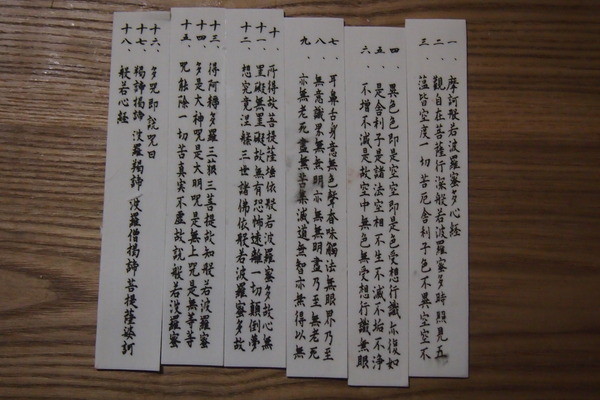 一、摩訶般若波羅蜜多心経
二、観自在菩薩行深般若波羅蜜多時照見五
三、蘊皆空度一切苦厄舎利子色不異空空不
四、異色色即是空空即是色受想行識亦復如
五、是舎利子是諸法空相不生不滅不垢不浄
六、不増不減是故空中無色無受想行識無眼
七、耳鼻舌身意無色聲香味觸法無眼界乃至
八、無意識界無無明亦無無明盡乃至無老死
九、亦無老死盡無苦集滅道無智亦無得以無
十、所得故菩提薩埵依般若波羅蜜多故心無
十一、罣礙無罣礙故無有恐怖遠離一切顛倒夢
十二、想究竟涅槃三世諸佛依般若波羅蜜多故
十三、得阿耨多羅三藐三菩提故知般若波羅蜜
十四、多是大神呪是大明呪是無上呪是無等等
十五、呪能除一切苦真実不虚故説般若波羅蜜
十六、多呪即説呪曰
十七、羯諦羯諦 波羅羯諦 波羅僧羯諦菩提薩婆訶
十八、般若心経